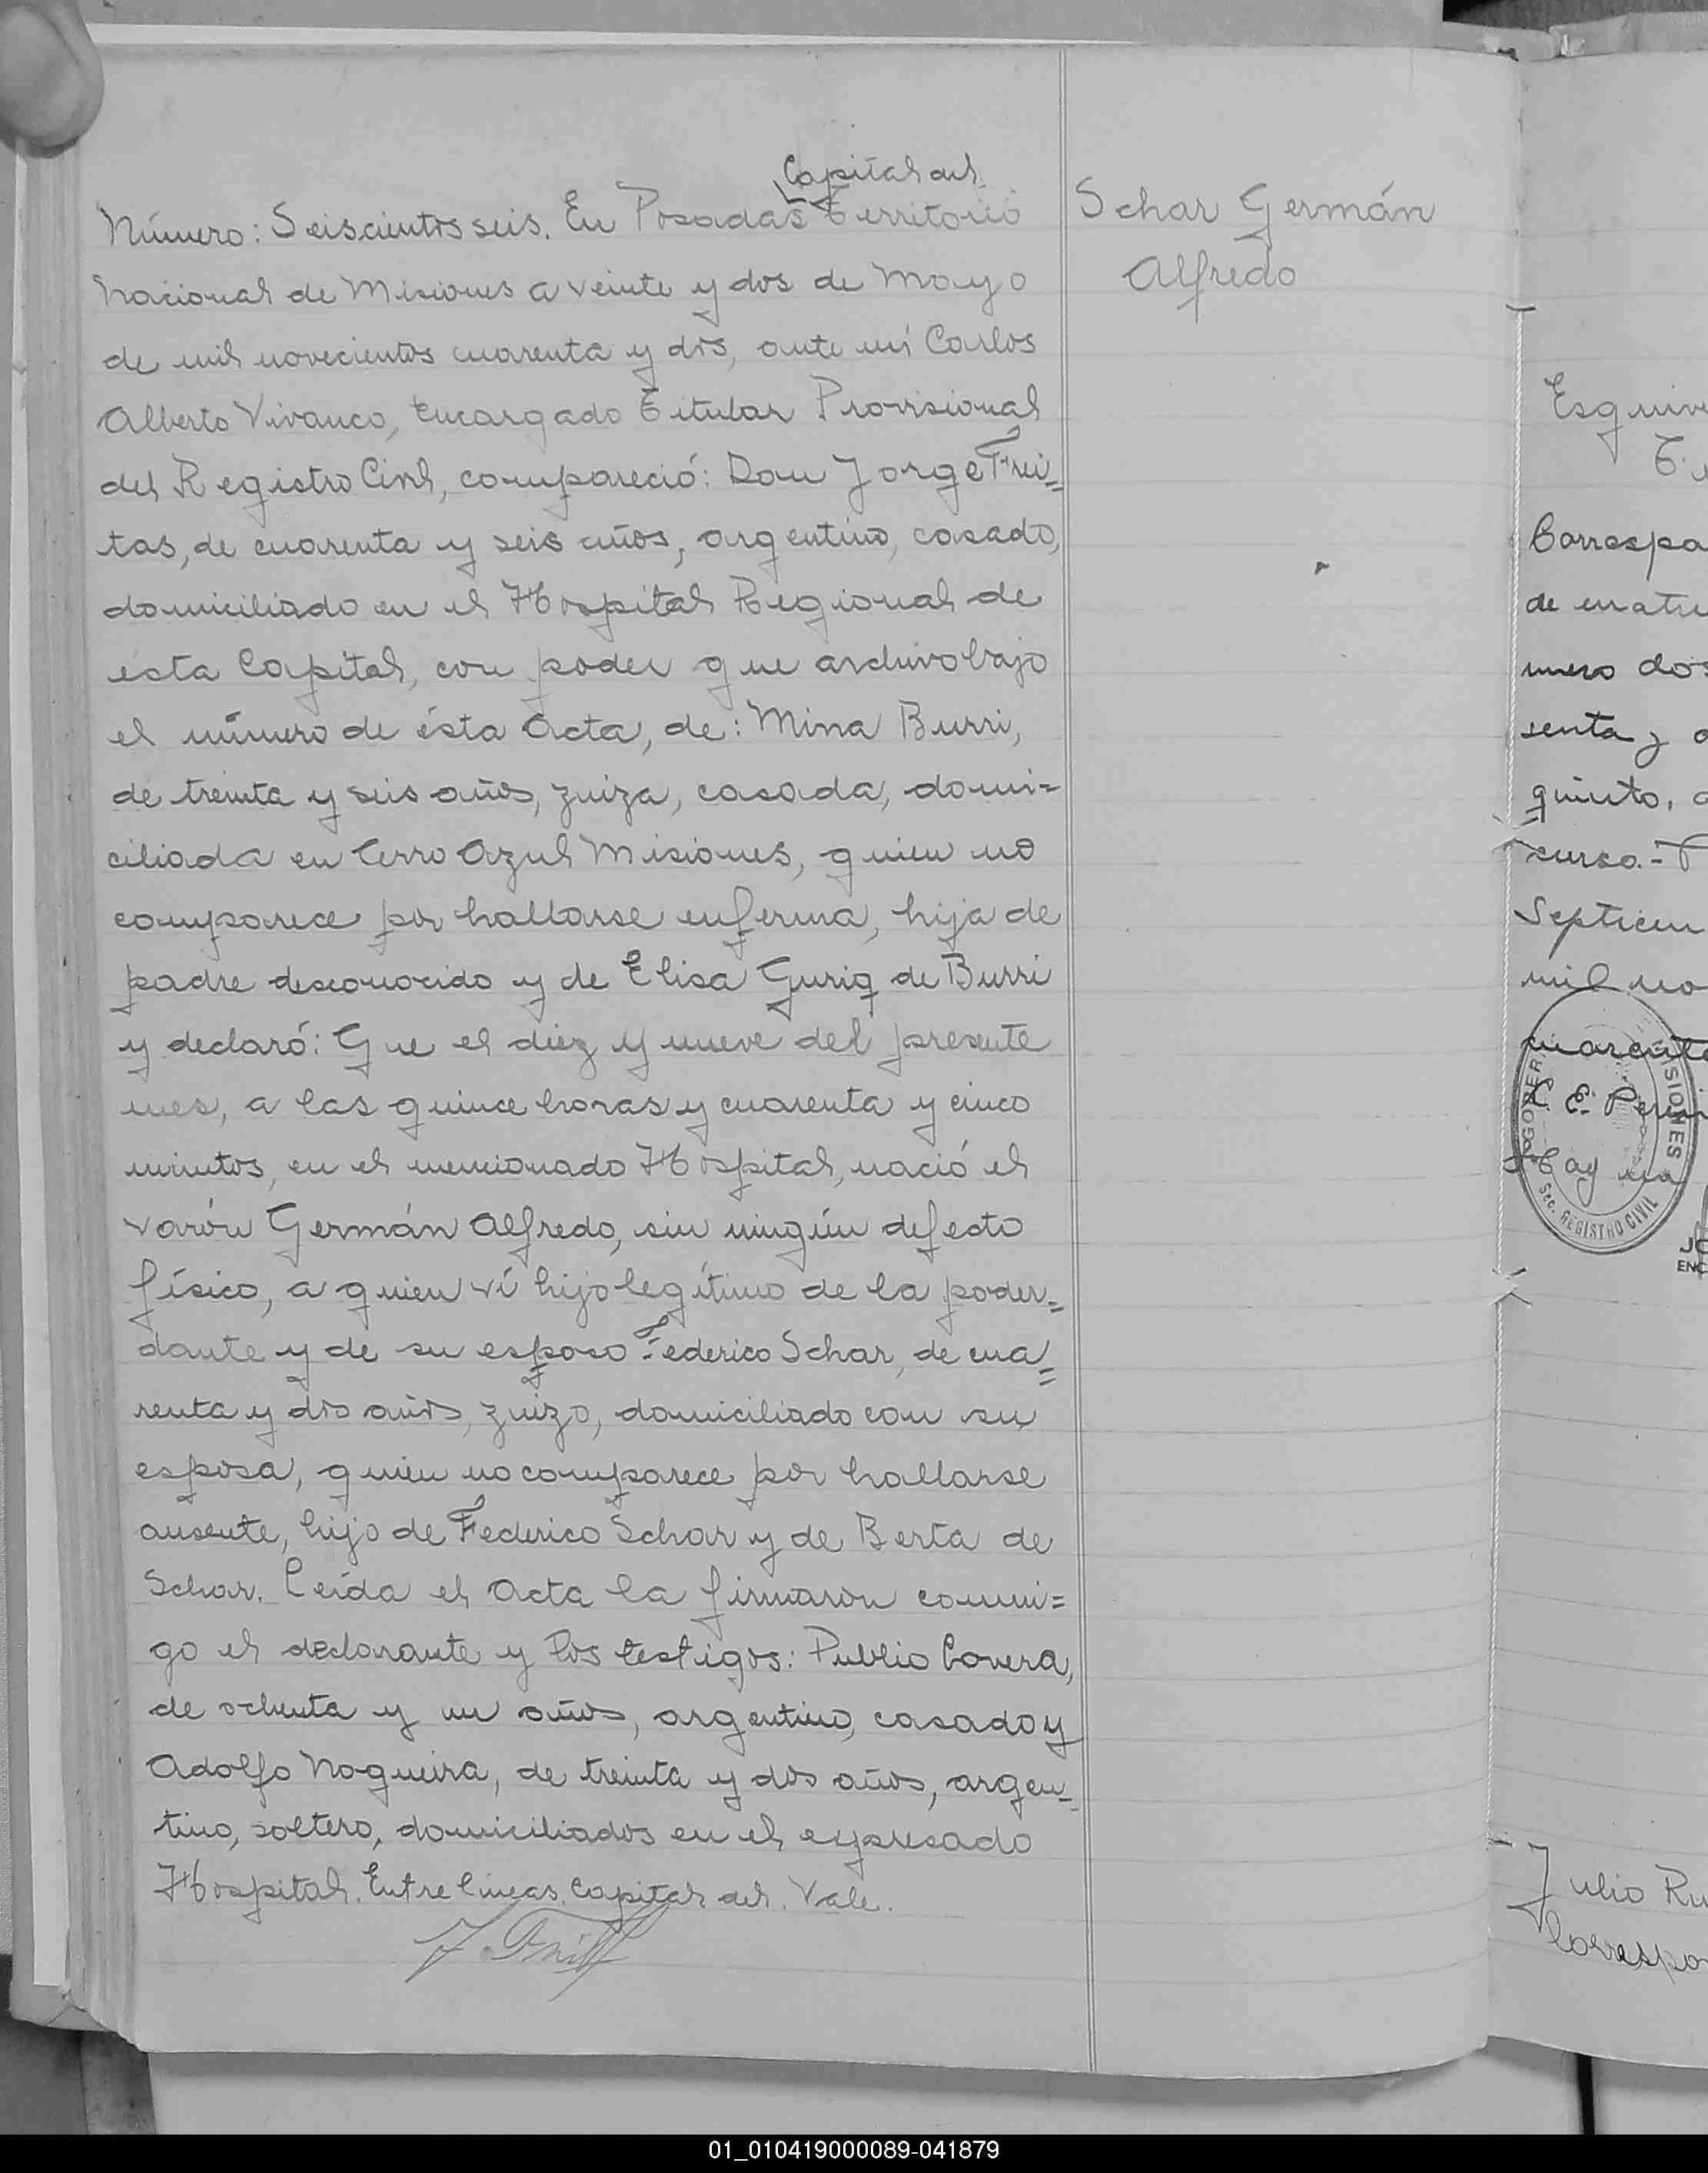 Capital del
Número: Seiscientos seis. En Posadas Territorio
Nacional de Misiones a veinte y dos de Mayo
de mil novecientos cuarenta y dos, ante mí Carlos
Alberto Vivanco, Encargado Titular Provisional
del Registro Civil, compareció: Don Jorge Frei=
tas, de cuarenta y seis años, argentino, casado,
domiciliado en el Hospital Regional de
ésta Capital, con poder que archivo bajo
el número de ésta Acta, de: Mina Burri,
de treinta y seis años, zuiza, casada, domi=
ciliada en Cerro Azul Misiones, quien no
comparece por hallarse enferma, hija de
padre desconocido y de Elisa Guriq de Burri
y declaró: Que el diez y nueve del presente
mes, a las quince horas y cuarenta y cinco
minutos, en el mencionado Hospital, nació el
varón Germán Alfredo, sin ningún defecto
físico, a quien ví hijo legítimo de la poder=
dante y de su esposo Federico Schar, de cua=
renta y dos años, zuizo, domiciliado con su
esposa, quien no comparece por hallarse
ausente, hijo de Federico Schar y de Berta de
Schar. Leída el Acta la firmaron conmi=
go el declarante y los testigos: Publio Lovera,
de ochenta y un años, argentino, casado y
Adolfo Nogueira, de treinta y dos años, argen=
tino, soltero, domiciliados en el expresado
Hospital. Entre líneas. Capital del. Vale.
Schar Germán
Alfredo
de
dos
senta y
quinto,
curso.-
mil no
C. E.
Hay una
MISIONES
Sec. REGISTRO CIVIL
Julio
01_010419000089-041879